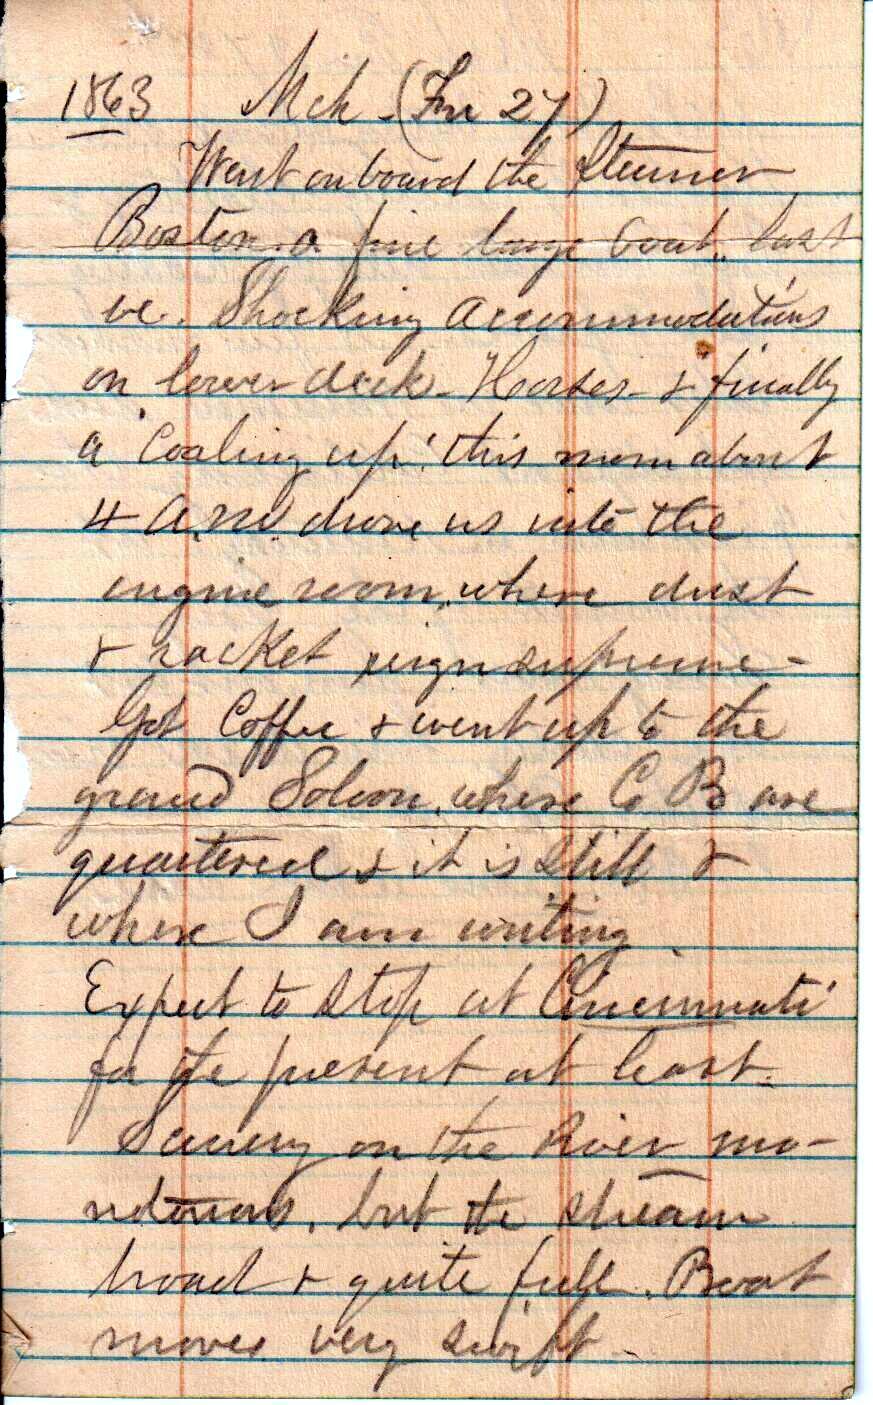 1863 Mch - (Fri 27)
Went on board the Steamer
Boston. a fine large boat. last
eve. Shocking accommodations
on lower deck - Horses - & finally
a "Coaling up" this morn about
4 A.M. drove us into the
engine room, where dust
& racket reign supreme -
Got Coffee & went up to the
grand Saloon, where Co B are
quartered & it is still &
where I am writing
Expect to stop at Cincinnati
for the present at least.
Scenery on the River mo-
notonous, but the stream
broad & quite full. Boat
moves very swift